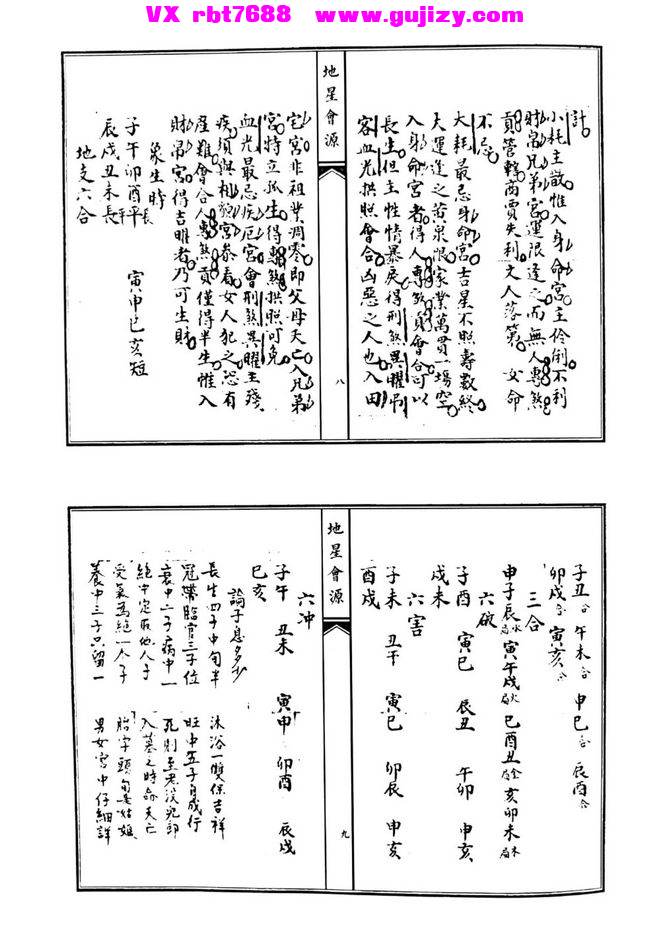 VX rbt7688 www.gujizy.com
計
小耗主嵗惟入身命宮主伶俐不利
財帛兄弟宮運限逢之而無人專煞
貢管轄商賈失利文人落第 女命
不忌
大耗最忌身命宮吉星不照壽數終
大運逢之黃泉限家業萬貫一塲空
入身命宮者得人專煞貢會合可以
長生但主性情暴戾得刑煞異曜弔
客血光拱照會合凶惡之人也入田
地星會源
八
宅宮非祖業凋零即父母夭亡入兄弟
宮特立孤生得專煞拱照可免
血光最忌疾厄宮會刑煞異曜主殘
疾須與相貌宮參看女人犯之恐有
產難會合人專煞貢僅得半生惟入
財帛宮得吉曜者乃可生財
象生時
子午卯酉平 寅申巳亥短
辰戌丑未長
地支六合
子丑合 午未合 申巳合 辰酉合
卯戌合 寅亥合
三合
申子辰水局 寅午戌火局 巳酉丑金局 亥卯未木局
六破
子酉 寅巳 辰丑 午卯 申亥
戌未
六害
子未 丑午 寅巳 卯辰 申亥
酉戌
地星會源
九
六冲
子午 丑未 寅申 卯酉 辰戌
巳亥
論子息多少
長生四子中旬半 沐浴一雙保吉祥
冠帶臨官三子位 旺中五子自成行
衰中二子病中一 死中至老沒兒郎
絕中定取他人子 入墓之時命夭亡
受氣爲絕一个子 胎字頭旬是姑娘
養中三子只留一 男女宮中仔細詳